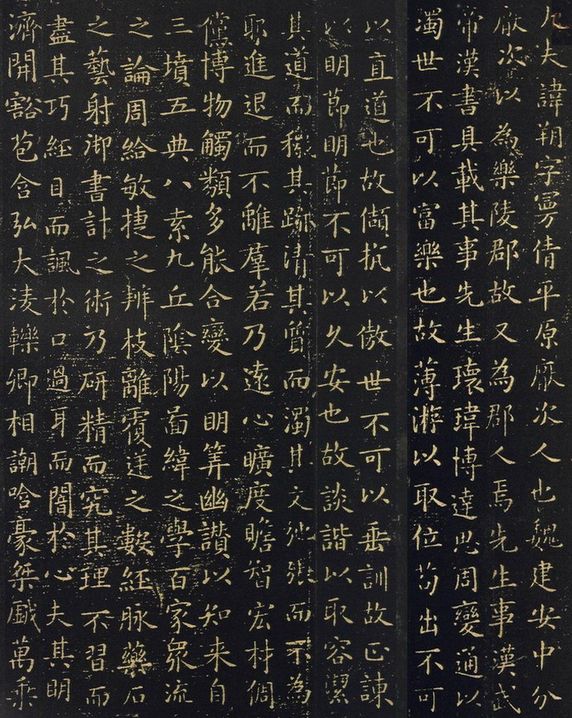 大夫諱朔字曼倩平原厭次人也魏建安中分
厭次以為樂陵郡故又為郡人焉先生事漢武
帝漢書具載其事先生瓌瑋博達思周變通以
濁世不可以富樂也故薄游以取位苟出不可
以直道也故傾抗以傲世不可以垂訓故正諫
以明節明節不可以久安也故談諧以取容潔
其道而穢其跡清其質而濁其文弛張而不為
耶進退而不離羣若乃遠心曠度贍智宏材倜
儻博物觸類多能合變以明筭幽讚以知來自
三墳五典八索九丘陰陽圖緯之學百家眾流
之論周給敏捷之辨枝離覆逆之數經脉藥石
之藝射御書計之術乃研精而究其理不習而
盡其巧經目而諷於口過耳而闇於心夫其明
濟開豁苞含弘大淩轢卿相謿哈豪桀戲萬乘